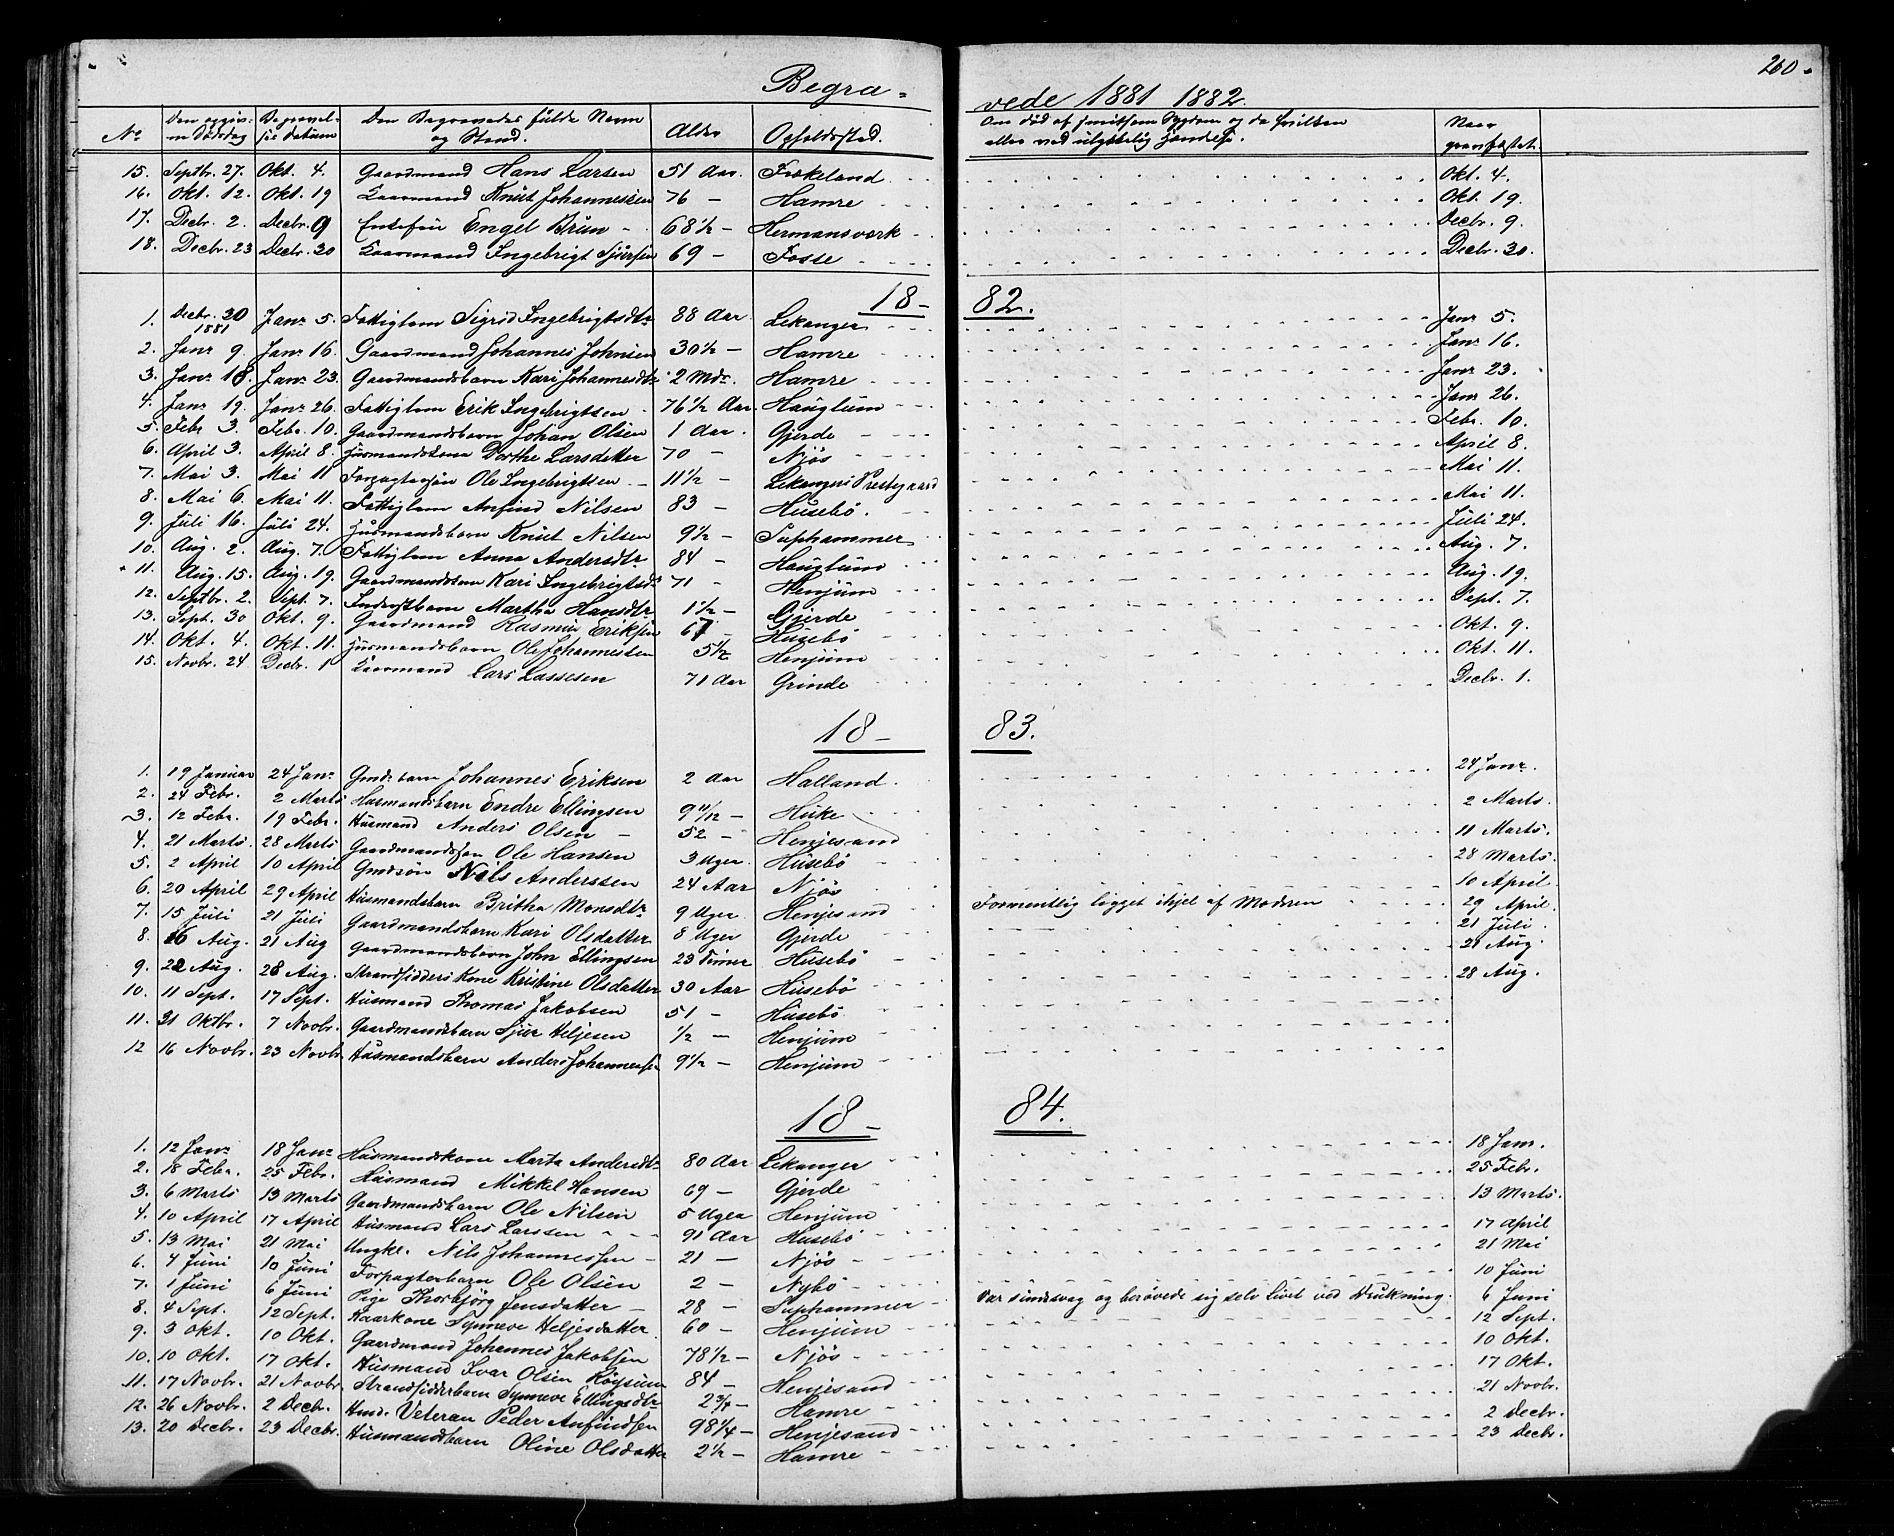 260.
Begra-
vede 1881 1882.
No Den opgivne Dødsdag Begravelses Datum Den Begravedes fulde Navn og Stand. Alder Opholdssted. Om død af smitsom Sygdom og da hvilken eller ved ulykkelig Hændelse. Naar jordfæstet.
15. Septbr. 27. Okt. 4. Gaardmand Hans Larsen 51 Aar. Frøkeland Okt. 4.
16. Okt. 12. Okt. 19 Kaarmand Knut Johannessen 76 - Hamre Okt. 19.
17. Decbr. 2. Decbr. 9 Enkefru Engel Brun 68 1/2 - Hermansværk Decbr. 9.
18. Decbr. 23 Decbr. 30 Kaarmand Ingebrigt Sjursen 69 - Fosse Decbr. 30.
18-82.
1. Decbr. 30 1881 Janr 5. Fattiglem Sigrid Ingebrigtsdtr 88 Aar Lekanger Janr 5.
2. Janr 9. Janr 16. Gaardmand Johannes Johnsen 30 1/2 - Hamre Janr 16.
3. Janr 18. Janr 23. Gaardmandsbarn Kari Johannesdtr 2 Mdr. Hamre Janr 23.
4. Janr 19. Janr 26. Fattiglem Erik Ingebrigtsen 76 1/2 Aar Hauglum Janr 26.
5. Febr 3. Febr. 10. Gaardmandsbarn Johan Olsen 1 Aar. Gjerde Febr. 10.
6. April 3. April 8. Husmandskone Dorthe Larsdatter 70 - Njøs April 8.
7. Mai 3. Mai 11 Forpagtersøn Ole Ingebrigtsen 11 1/2 - Lekanger Prestegaard Mai 11.
8. Mai 6. Mai 11. Fattiglem Anfind Nilsen 83 - Husebø. Mai 11.
9. Juli 16. Juli 24. Husmandsbarn Knut Nilsen 9 1/2 - Suphammer Juli 24.
10. Aug. 2. Aug. 7. Fattiglem Anna Andersdtr 84 - Hauglum Aug. 7.
11. Aug. 15. Aug. 19. Gaardmandskone Kari Ingebrigtsd. 71 - Henjum Aug. 19.
12. Septbr. 2. Sept. 7. Inderstbarn Martha Hansdtr 1 1/2 - Gjerde Sept. 7.
13. Sept. 30 Okt. 9. Gaardmand Rasmus Eriksen 67 - Husebø Okt. 9.
14. Okt. 4. Okt. 11. Husmandsbarn Ole Johannessen 5 1/2 Henjum Okt. 11.
15. Novbr. 24 Decbr. 1 Kaarmand Lars Lassesen 71 Aar Grinde Decbr. 1.
18-83.
1. 19 Januar 24 Janr Gmds. barn Johannes Eriksen 2 Aar Halland. 24 Janr.
2. 24 Febr. 2 Marts Husmandsbarn Endre Ellingsen 9 11/12 - Huke 2 Marts.
3. 12 Febr. 19 Febr. Husmand Anders Olsen 52 - Henjesand 11 Marts.
4. 21 Marts 28 Marts Gaardmandssøn Ole Hansen 3 Uger. Husebø 28 Marts.
5. 2 April 10 April Gmdsøn Nils Anderssen 24 Aar Njøs 10 April.
6. 20 April 29 April Husmandsbarn Britha Monsdtr 9 Uger Henjesand Formentlig ligget ihjel af Modren 29 April.
7. 15 Juli 21 Juli Gaardmandsbarn Kari Olsdatter 8 Uger Gjerde 21 Juli.
8. 16 Aug. 21 Aug Gaardmandsbarn John Ellingsen 23 Timer Husebø 21 Aug.
9. 22 Aug. 28 Aug. Strandsidders Kone Kristine Olsdatter 30 Aar Husebø 28 Aug.
10. 11 Sept. 17 Sept. Husmand Thomas Jakobsen 51 - Husebø
11. 31 Oktbr. 7 Novbr. Gaardmandsbarn Sjur Heljesen 1/2 - Henjum
12 16 Novbr. 23 Novbr. Husmandsbarn Anders Johannessen 9 1/2 - Henjum
18-84.
1. 12 Janr 18 Janr Husmandskone Marta Andersdtr 80 Aar Lekanger 18 Janr.
2. 18 Febr. 25 Febr. Husmand Mikkel Hansen 69 - Gjerde 25 Febr.
3. 6 Marts 13 Marts Gaardmandsbarn Ole Nilsen 5 Uger Henjum 13 Marts.
4. 10 April 17 April Husmand Lars Larssen 91 Aar Husebø 17 April
5. 13 Mai 21 Mai Ungkl. Nils Johannessen 21 - Njøs 21 Mai
6. 4 Juni 10 Juni Forpagterbarn Ole Olsen 2 - Nybø 10 Juni
7. 1 Juni 6 Juni Pige Thorbjørg Jensdatter 28 - Suphammer Var sindssvag og berøvede sig selv Livet ved Drukning. 6 Juni
8. 4 Sept. 12 Sept. Kaarkone Synneve Heljesdatter 60 - Henjum 12 Sept.
9. 3 Okt. 10 Okt. Gaardmand Johannes Jakobsen 78 1/2 - Njøs 10 Okt.
10. 10 Okt. 17 Okt. Husmand Ivar Olsen Røysum 84 - Henjesand 17 Okt.
11. 17 Novbr. 21 Novbr. Strandsidderbarn Synneve Ellingsdtr 2 3/4 - Hamre 21 Novbr.
12. 26 Novbr. 2 Decbr. Hmd. Veteran Peder Anfindsen 98 1/4 - Henjesand 2 Decbr.
13. 20 Decbr. 23 Decbr. Husmandsbarn Oline Olsdatter 2 1/2 - Hamre 23 Decbr.